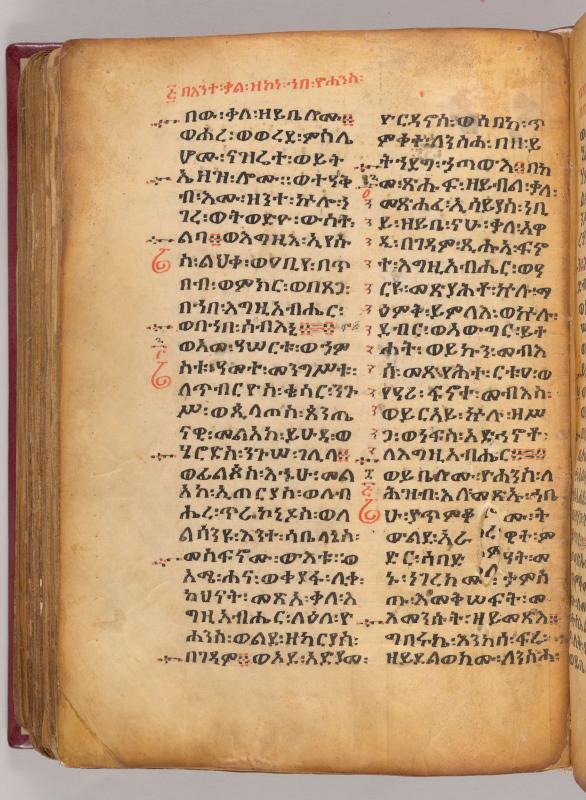 ፭ በእንተ፡ቃል፡ዘኮነ፡ኀበ፡ዮሐንስ፡
በው፡ቃለ፡ዘይቤሎሙ።
ወሐረ፡ወወረደ፡ምስሌ
ሆሙ፡ናዝሬተ፡ወይት
ኤዘዝ፡ሎሙ፡፡ወተዓቅ
ብ፡እሙ፡ዘንተ፡ኵሎ፡ነ
ገረ፡ወትወድዮ፡ውስተ፡
ልባ።ወእግዚእ፡ኢየሱ
ስ፡ልህቀ፡ወዐቢየ፡በጥ
በብ፡ወምክር፡ወበጸጋ፡
በኀበ፡እግዚአብሔር፡
ወበኀበ፡ሰብእኒ።
ወአመ፡ዓሠርቱ፡ወኀም
ስቱ፡ዓመት፡መንግሥቱ፡
ለጥብርዮስ፡ቄሳር፡ንጉ
ሥ፡ወጲላጦስ፡ጰንጤ
ናዊ፡መልአከ፡ይሁዳ፡ወ
ሄሮድስ፡ንጉሠ፡ገሊላ።
ወፊልጶስ፡እኁሁ፡መል
አከ፡ኢጠርያስ፡ወለብ
ሔረ፡ጥራኮኒዶስ፡ወለ
ልሳንዩ፡እንተ፡ሳቤላኔስ፡
መስፍኖሙ፡ውእቱ፡፡ወ
አሜ፡ሐና፡ወቀያፋ፡ሊቀ፡
ካህናት፡መጽአ፡ቃለ፡እ
ግዚአብሔር፡ላዕለ፡ዮ
ሐንስ፡ወልደ፡ዘካርያስ፡
በገዳም።ወአደ፡አድያመ፡
ዮርዳኖስ፡ወሰበከ፡ጥ
ምቀተ፡ለንስሐ፡በዘ፡ይ
ትኀደግ፡ኀጣውእ።በከ
መ፡ጽሑፍ፡ዘይብል፡ቃለ፡
መጽሐፈ፡ኢሳይያስ፡ነቢ
ይ፡ዘይቤ፡ናሁ፡ቃለ፡አዋ
ዲ፡በገዳም፡ጺሑአ፡ፍኖ
ተ፡እግዚአብሔር፡ወዓ
ርዩ፡መጽያሕቶ፡ኵሉ፡ማ
ዕምቅ፡ይምላእ፡ወኵሉ፡
ደብር፡ወአውግር፡ይት
ሐት፡ወይኩን፡መብእ
ስ፡መጽያሕተ፡ርቱዐ፡ወ
የዓሪ፡ፍኖተ፡መብእስ፡
ወይርአይ፡ኵሉ፡ዘሥ
ጋ፡ወነፍስ፡አድኅኖቶ፡
ለእግዚአብሔር።
ወይቤሎሙ፡ዮሐንስ፡ለ
ሕዝብ፡እለ፡መጽኡ፡ኀቤ
ሁ፡ያጥምቆሙ፡ት
ውልደ፡አራዊት፡ም
ድር፡ሰበድዓት፡መ
ኑ፡ነገረክሙ፡ታምስ
ጡ፡እመቅሠፍት፡መ
እመንሱት፡ዘይመጽእ።
ግበሩኬ፡እንከሰ፡ፍሬ፡
ዘይደልወክሙ፡ለንስሐ፡